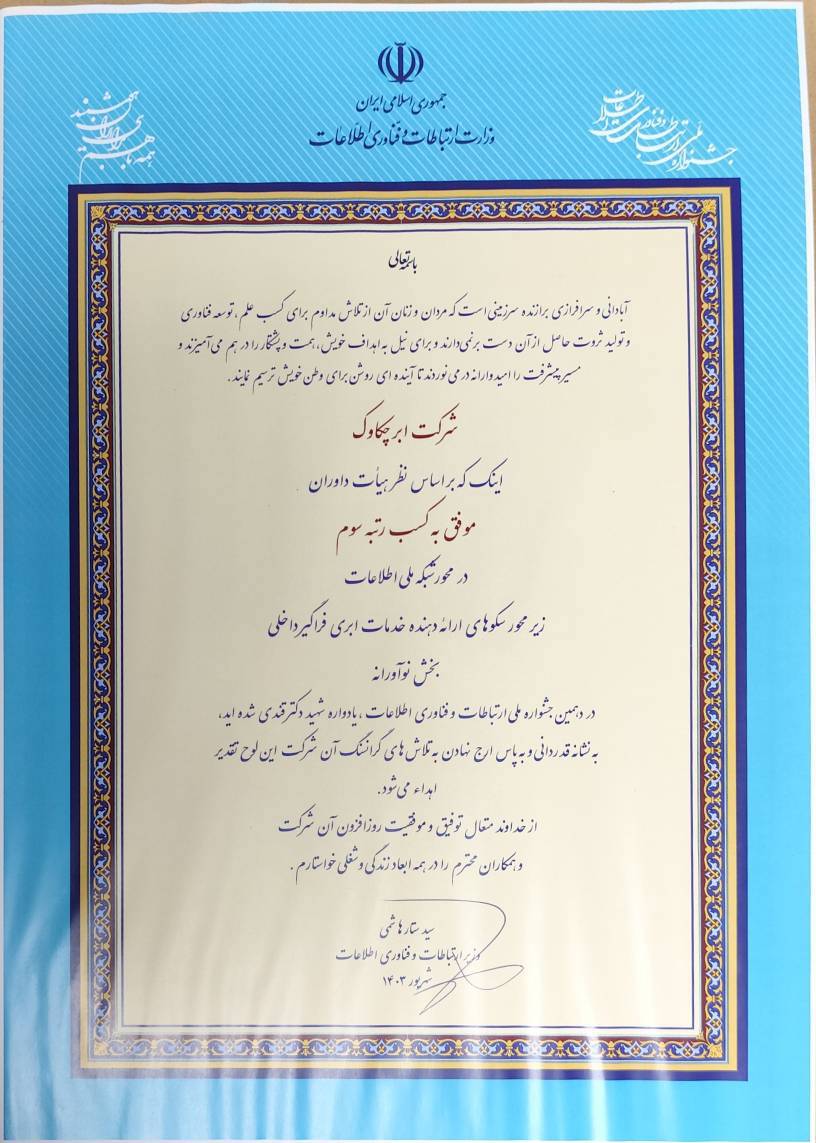 جمهوری اسلامی ایران
وزارت ارتباطات و فنّاوری اطلاعات
جشنواره ملی ارتباطات و فناوری اطلاعات
همه با هم
برای ایران
باسمه تعالی
آبادانی و سرافرازی برازنده سرزمینی است که مردان و زنان آن از تلاش مداوم برای کسب علم، توسعه فناوری
و تولید ثروت حاصل از آن دست برنمی‌دارند و برای نیل به اهداف خویش، همت و پشتکار را در هم می‌آمیزند و
مسیر پیشرفت را امیدوارانه در می نوردند تا آینده ای روشن برای وطن خویش ترسیم نمایند.
شرکت ابر چکاوک
اینک که بر اساس نظر هیأت داوران
موفق به کسب رتبه سوم
در محور شبکه ملی اطلاعات
زیر محور سکوهای ارائه دهنده خدمات ابری فراگیر داخلی
بخش نوآورانه
در دهمین جشنواره ملی ارتباطات و فناوری اطلاعات، یادواره شهید دکتر قندی شده اید،
به نشانه قدردانی و به پاس ارج نهادن به تلاش های گرانسنگ آن شرکت این لوح تقدیر
اهداء می‌شود.
از خداوند متعال توفیق و موفقیت روزافزون آن شرکت
و همکاران محترم را در همه ابعاد زندگی و شغلی خواستارم.
سید ستار هاشمی
وزیر ارتباطات و فناوری اطلاعات
شهریور ۱۴۰۳